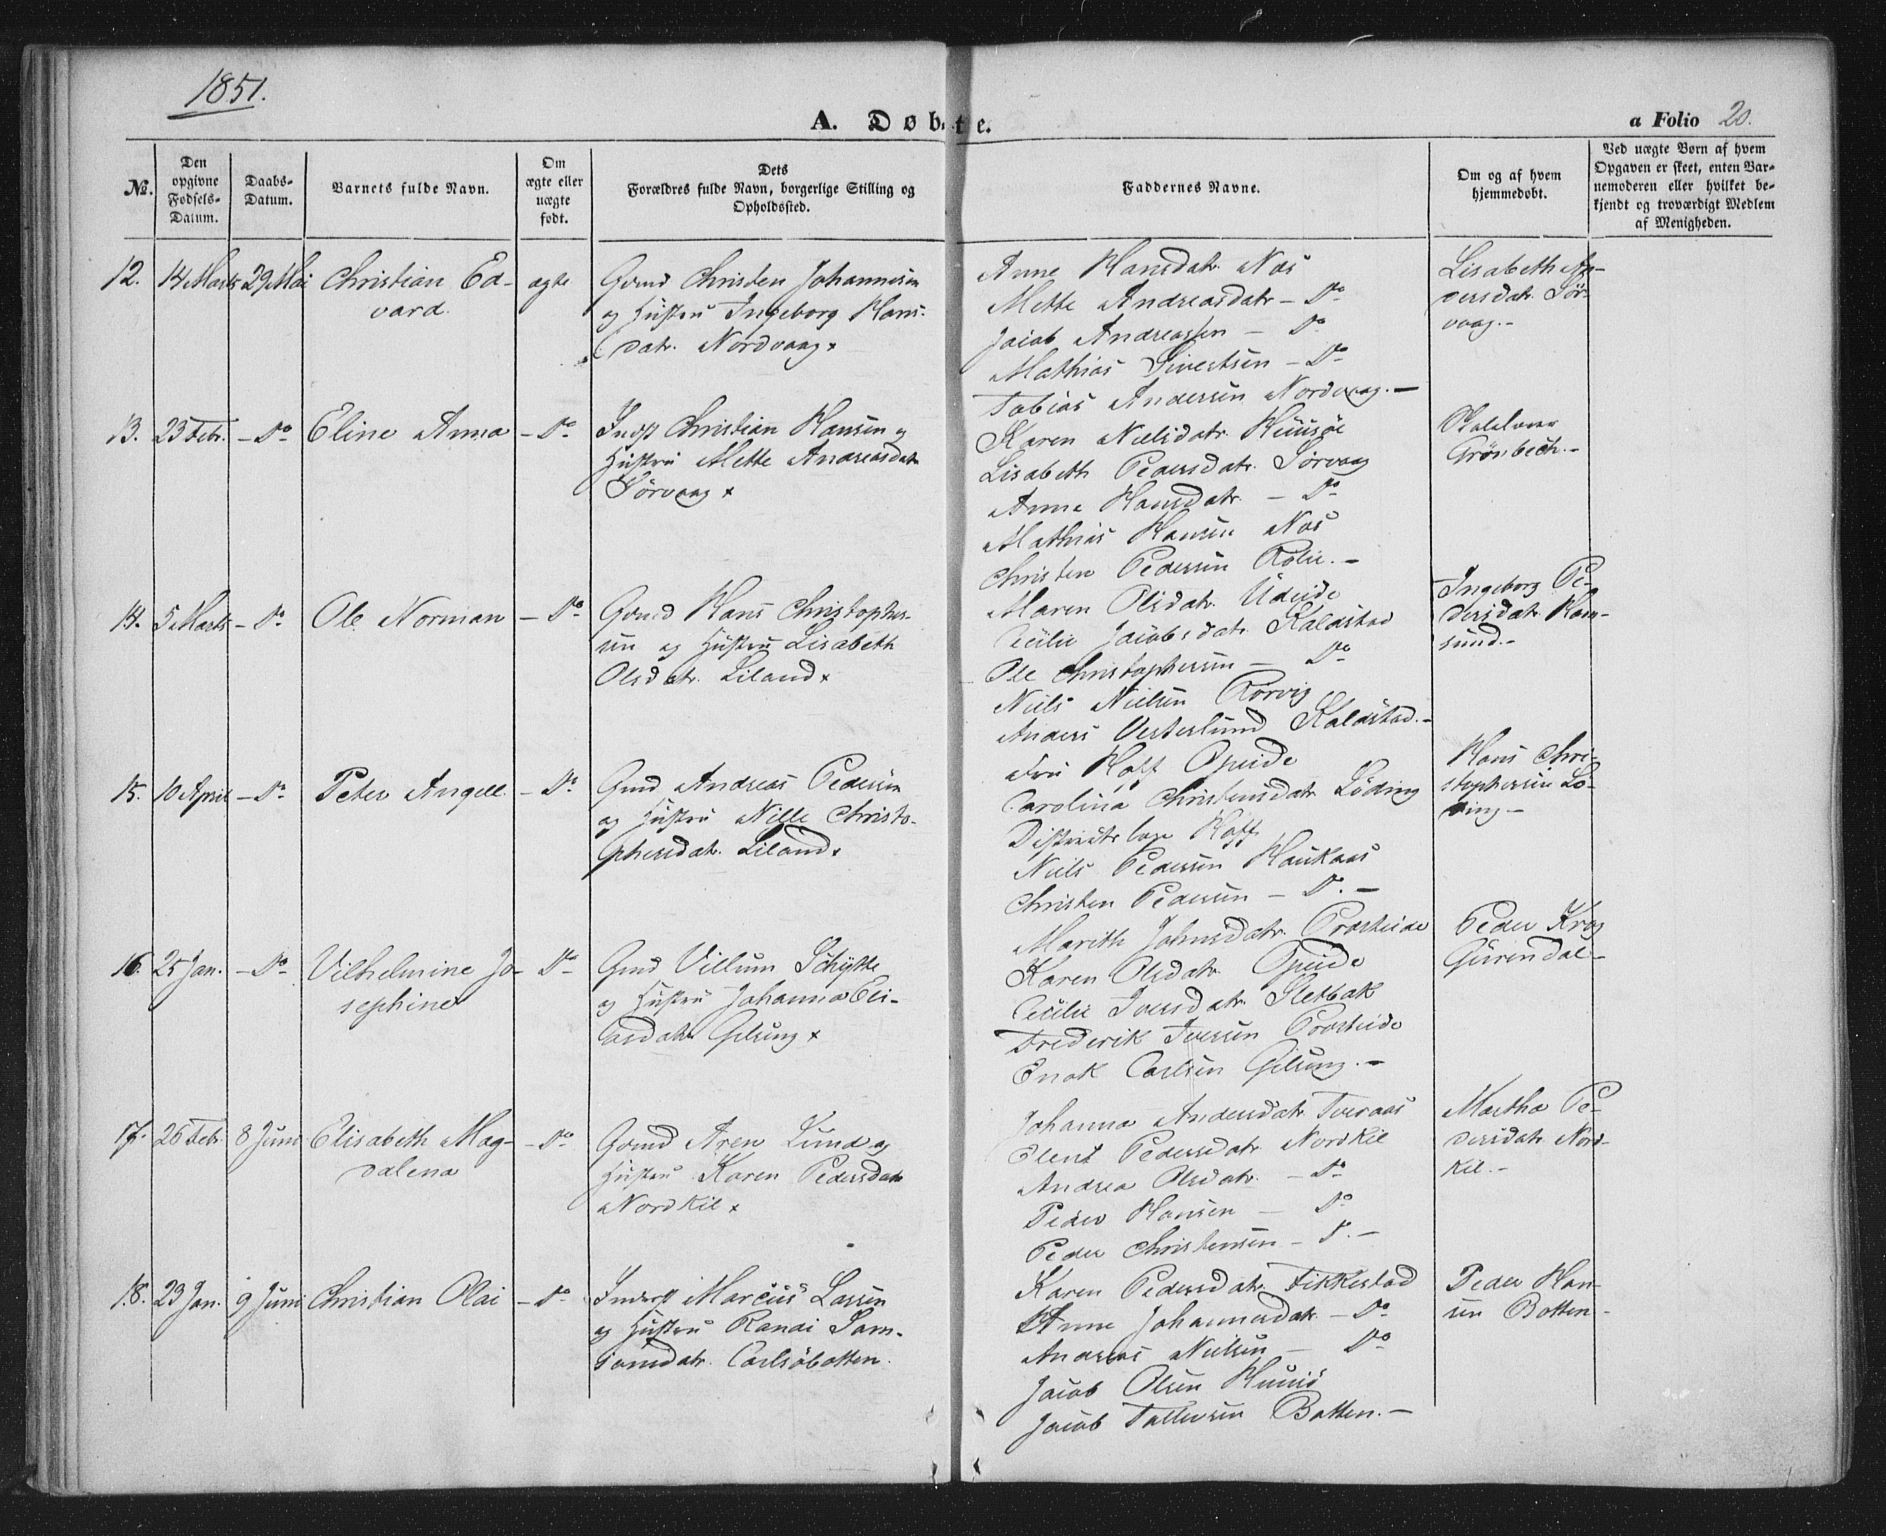 1851.
A. Døbte.
a Folio 20.
№.
Den opgivne Fødsels-Datum.
Daabs-Datum.
Barnets fulde Navn.
Om ægte eller uægte født.
Dets Forældres fulde Navn, borgerlige Stilling og Opholdssted.
Faddernes Navne.
Om og af hvem hjemmedøbt.
Ved uægte Børn af hvem Opgaven er skeet, enten Barnemoderen eller hvilket bekjendt og troværdigt Medlem af Menigheden.
12. 14 Marts 29 Mai Christian Ed-
vard.
ægte
Gmd Christen Johannesen
og Hustru Ingeborg Hans-
datr. Nordvaag
Anne Hansdatr. Nos
Mette Andreasdatr - Do
Jacob Andreassen - Do
Mathias Sivertsen - Do
Tobias Andersen Nordvaag. -
Lisabeth An-
dersdatr. Sør-
vaag. -
13. 23 Febr. - Do Eline Anna - Do
Indst Christian Hansen og
Hustru Mette Andreasdatr
Sørvaag
Karen Nielsdatr.
Lisabeth Pedersdatr. Sørvaag
Anne Hansdatr. - Do
Mathias Hansen Nos
Christen Pedersen Rølie. -
Grönbech. -
14. 5 Marts - Do Ole Norman - Do
Gmd Hans Christophers-
en og Hustru Lisabeth
Olsdatr. Liland
Maren Olsdatr. Udeide
Cecilie Jacobsdatr. Kaldstad
Ole Christophersen - Do
Niels Nielsen Rørvig
Anders Vesterlund Kaldstad. -
Ingeborg Pe-
dersdatr. Ram-
sund. -
15. 10 April - Do Peter Angell. - Do
Gmd Andreas Pedersen
og Hustru Nille Christo-
phersdatr. Liland
Fru Hoff Opeide
Carolina Christensdatr. Løding
Districtslæge Hoff
Niels Pedersen Haukaas
Christen Pedersen - Do. -
Hans Chri-
stophersen Lø-
ding -
16. 25 Jan. - Do Vilhelmine Jo-
sephine
- Do
Gmd Villum Schytte
og Hustru Johanna Eli-
asdatr Gilsung
Marith Johnsdatr. Præsteide
Karen Olsdatr. Opeide
Cecilie Iversdatr. Sletbak
Frederik Iversen Præsteide
Enok Carlsen Gilsung. -
Peder Krog
17. 26 Febr. 8 Juni Elisabeth Mag-
dalena
- Do
Gmd Aren Lund og
Hustru Karen Pedersdatr
Nordkil
Johanna Andersdatr. Tveraas
Elent Pedersdatr. Nordkil
Andrea Olsdatr. - Do
Peder Hansen - Do
Peder Christensen - D. -
Martha Pe-
dersdatr. Nord-
kil. -
18. 23 Jan. 9 Juni Christian Olai - Do
Inderst Marcus Larsen
og Hustru Randi Sam-
sonsdatr. Carlsöbotten.
Karen Pedersdatr. Fikkestad
Anne Johannesdatr. - Do
Andreas Nielsen - Do
Jacob Olsen
Jacob Tollevsen Botten. -
Peder Han-
sen Botten -